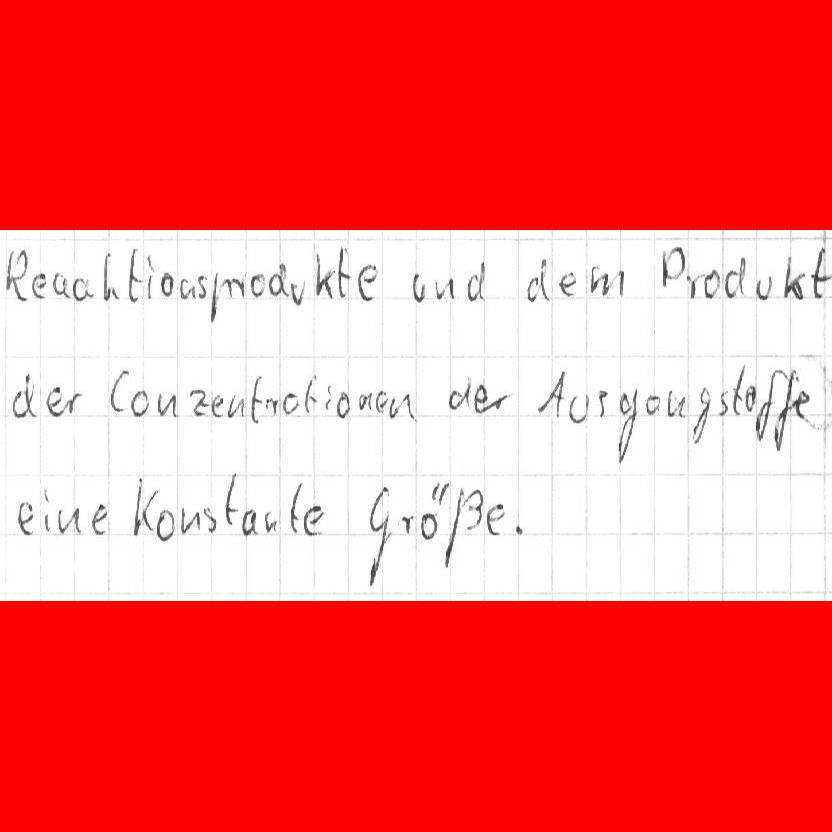 Reaahtionsprodukte und dem Produkt
der Conzentrationen der Ausgangstoffe
eine Konstante Größe.